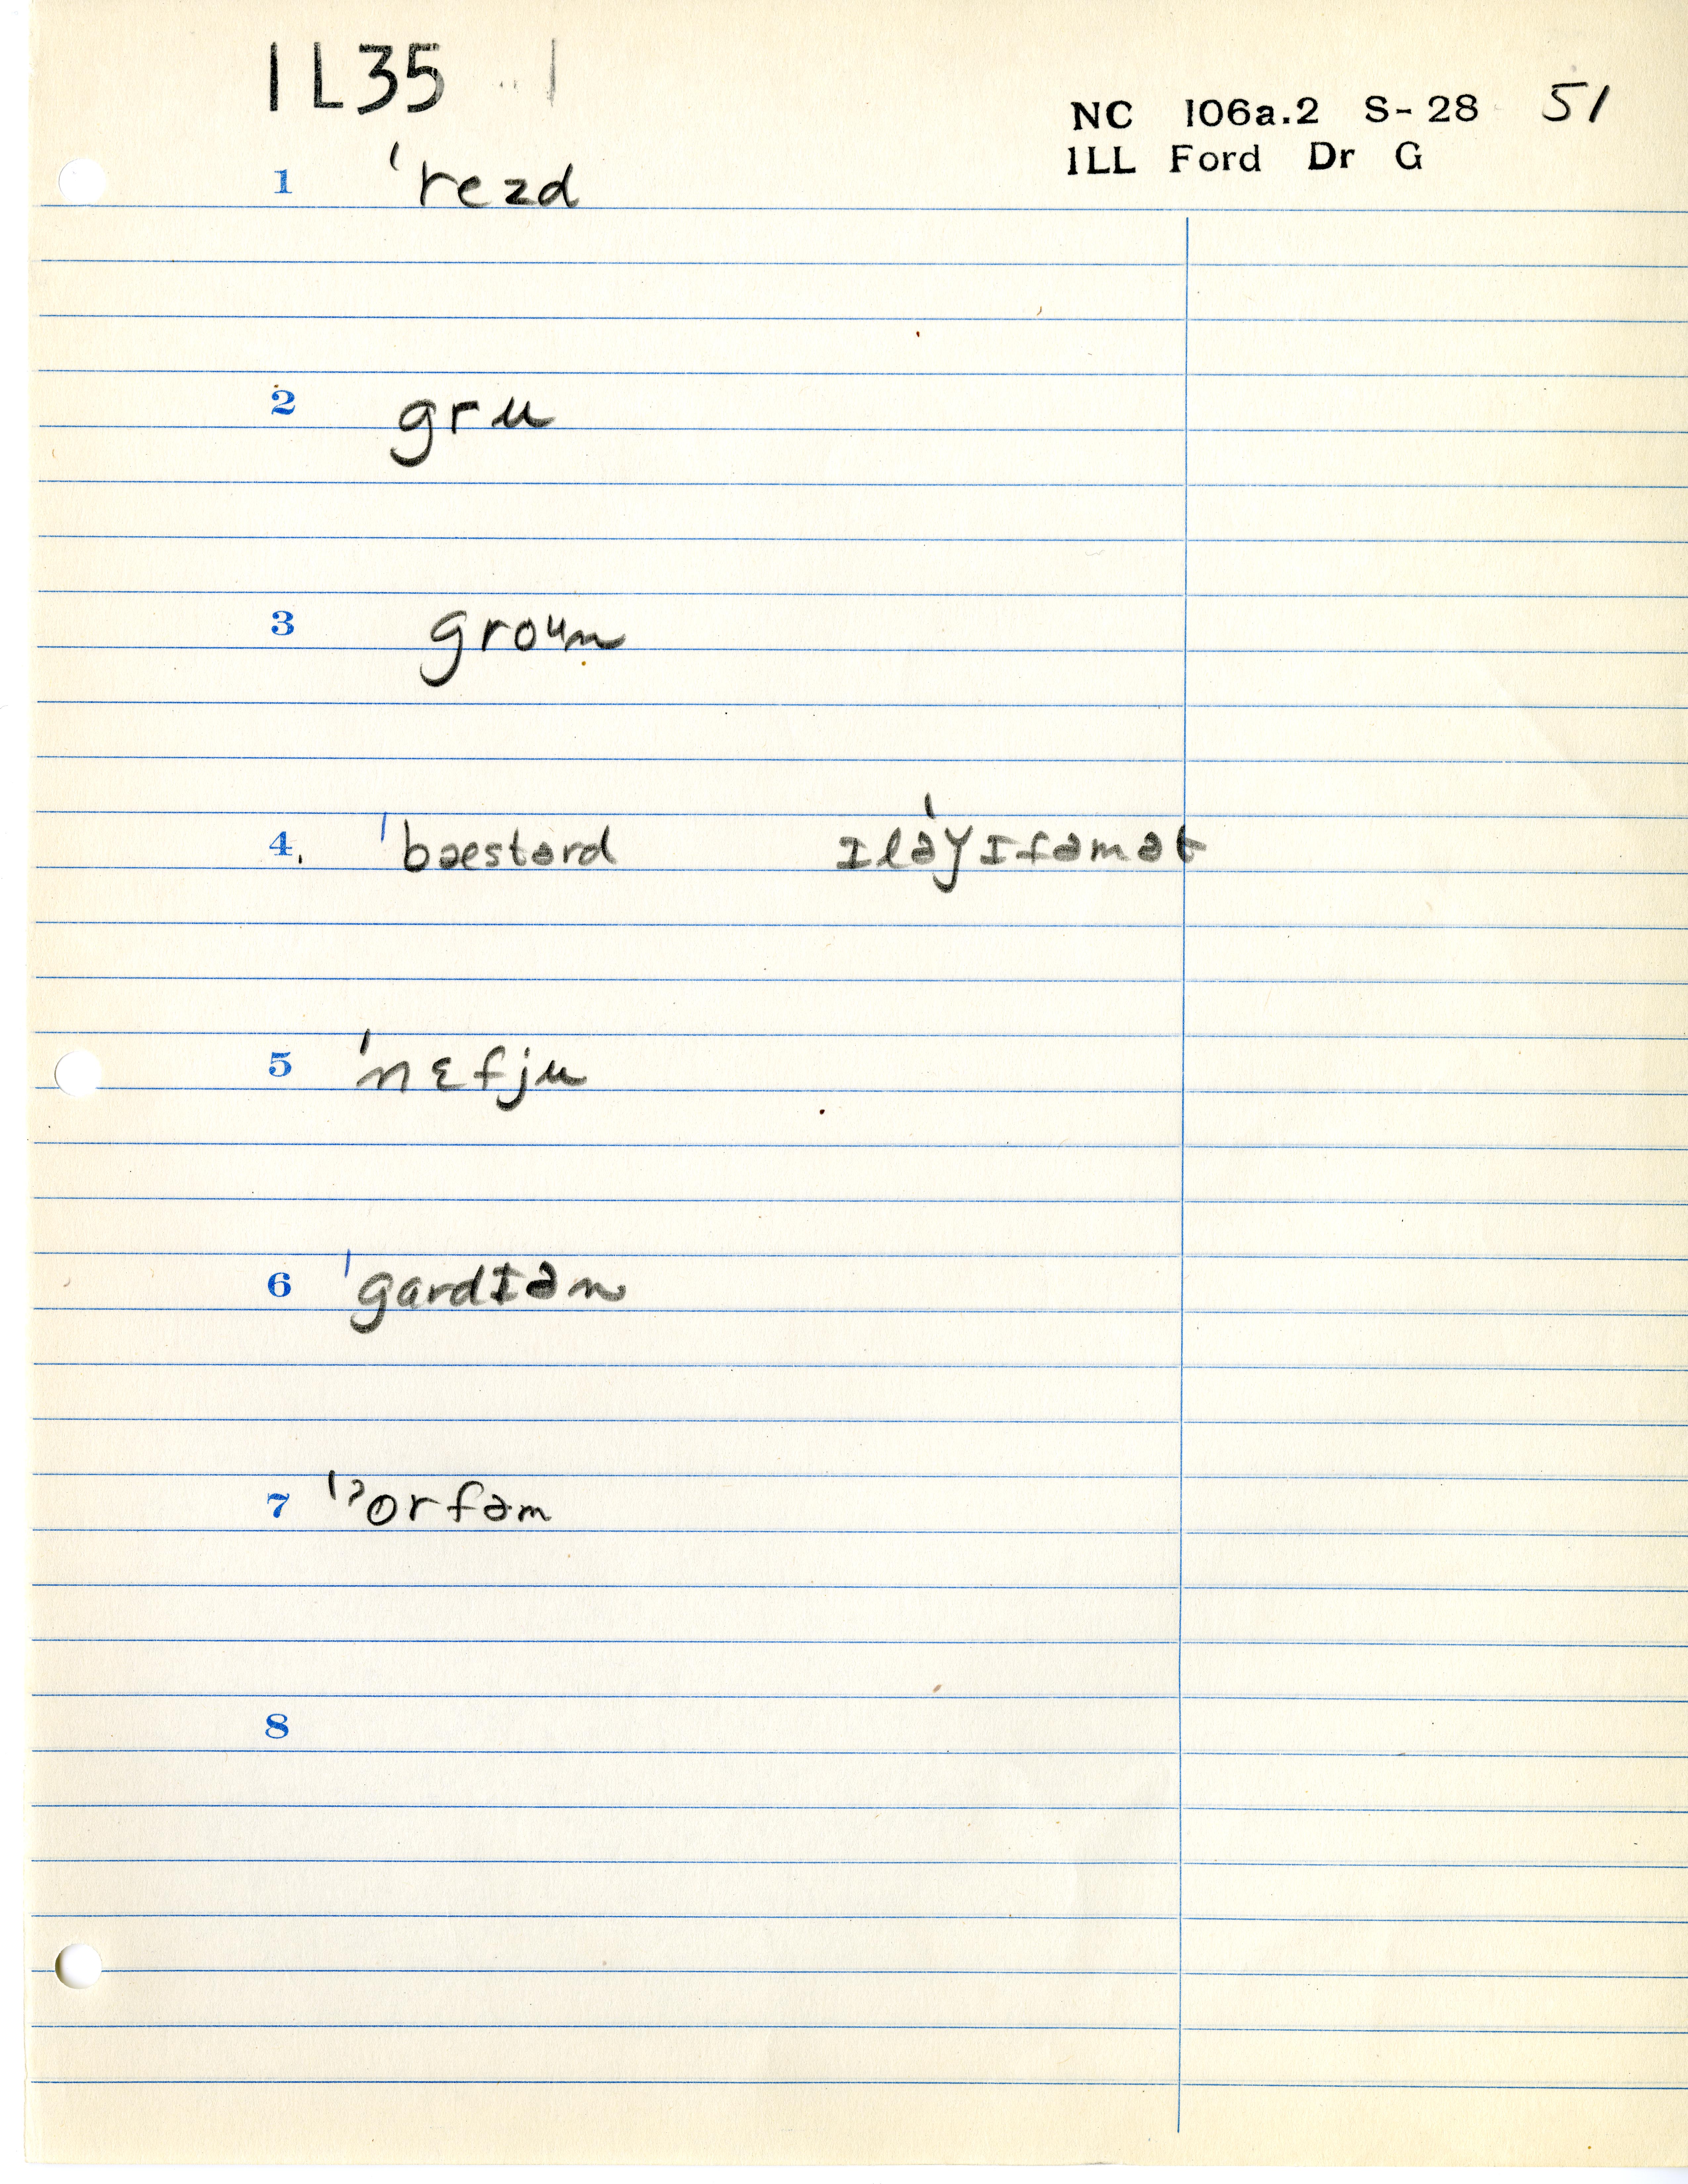 IL35
NC 106a.2 S-28 51
ILL Ford Dr G
1 ˈrezd
2 gru
3 groᵘn
4. ˈbæstərd ɪləˈɣɪtəmət
5 ˈnɛfju
6 ˈgardɪən
7 ˈˀorfəm
8